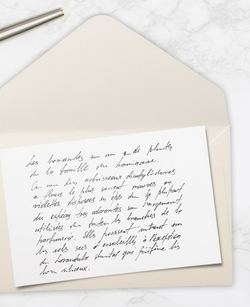 Les lavandes sont un genre de plantes
de la famille des lamiacées.
Ce sont des arbrisseaux dicotylédones
à fleurs le plus souvent mauves ou
violettes disposées en épis dont la plupart
des espèces très odorantes sont largement
utilisées dans toutes les branches de la
parfumerie. Elles poussent surtout sur
les sols secs et ensoleillés, à l'exception
de lavandula qui préfère les
lieux siliceux.